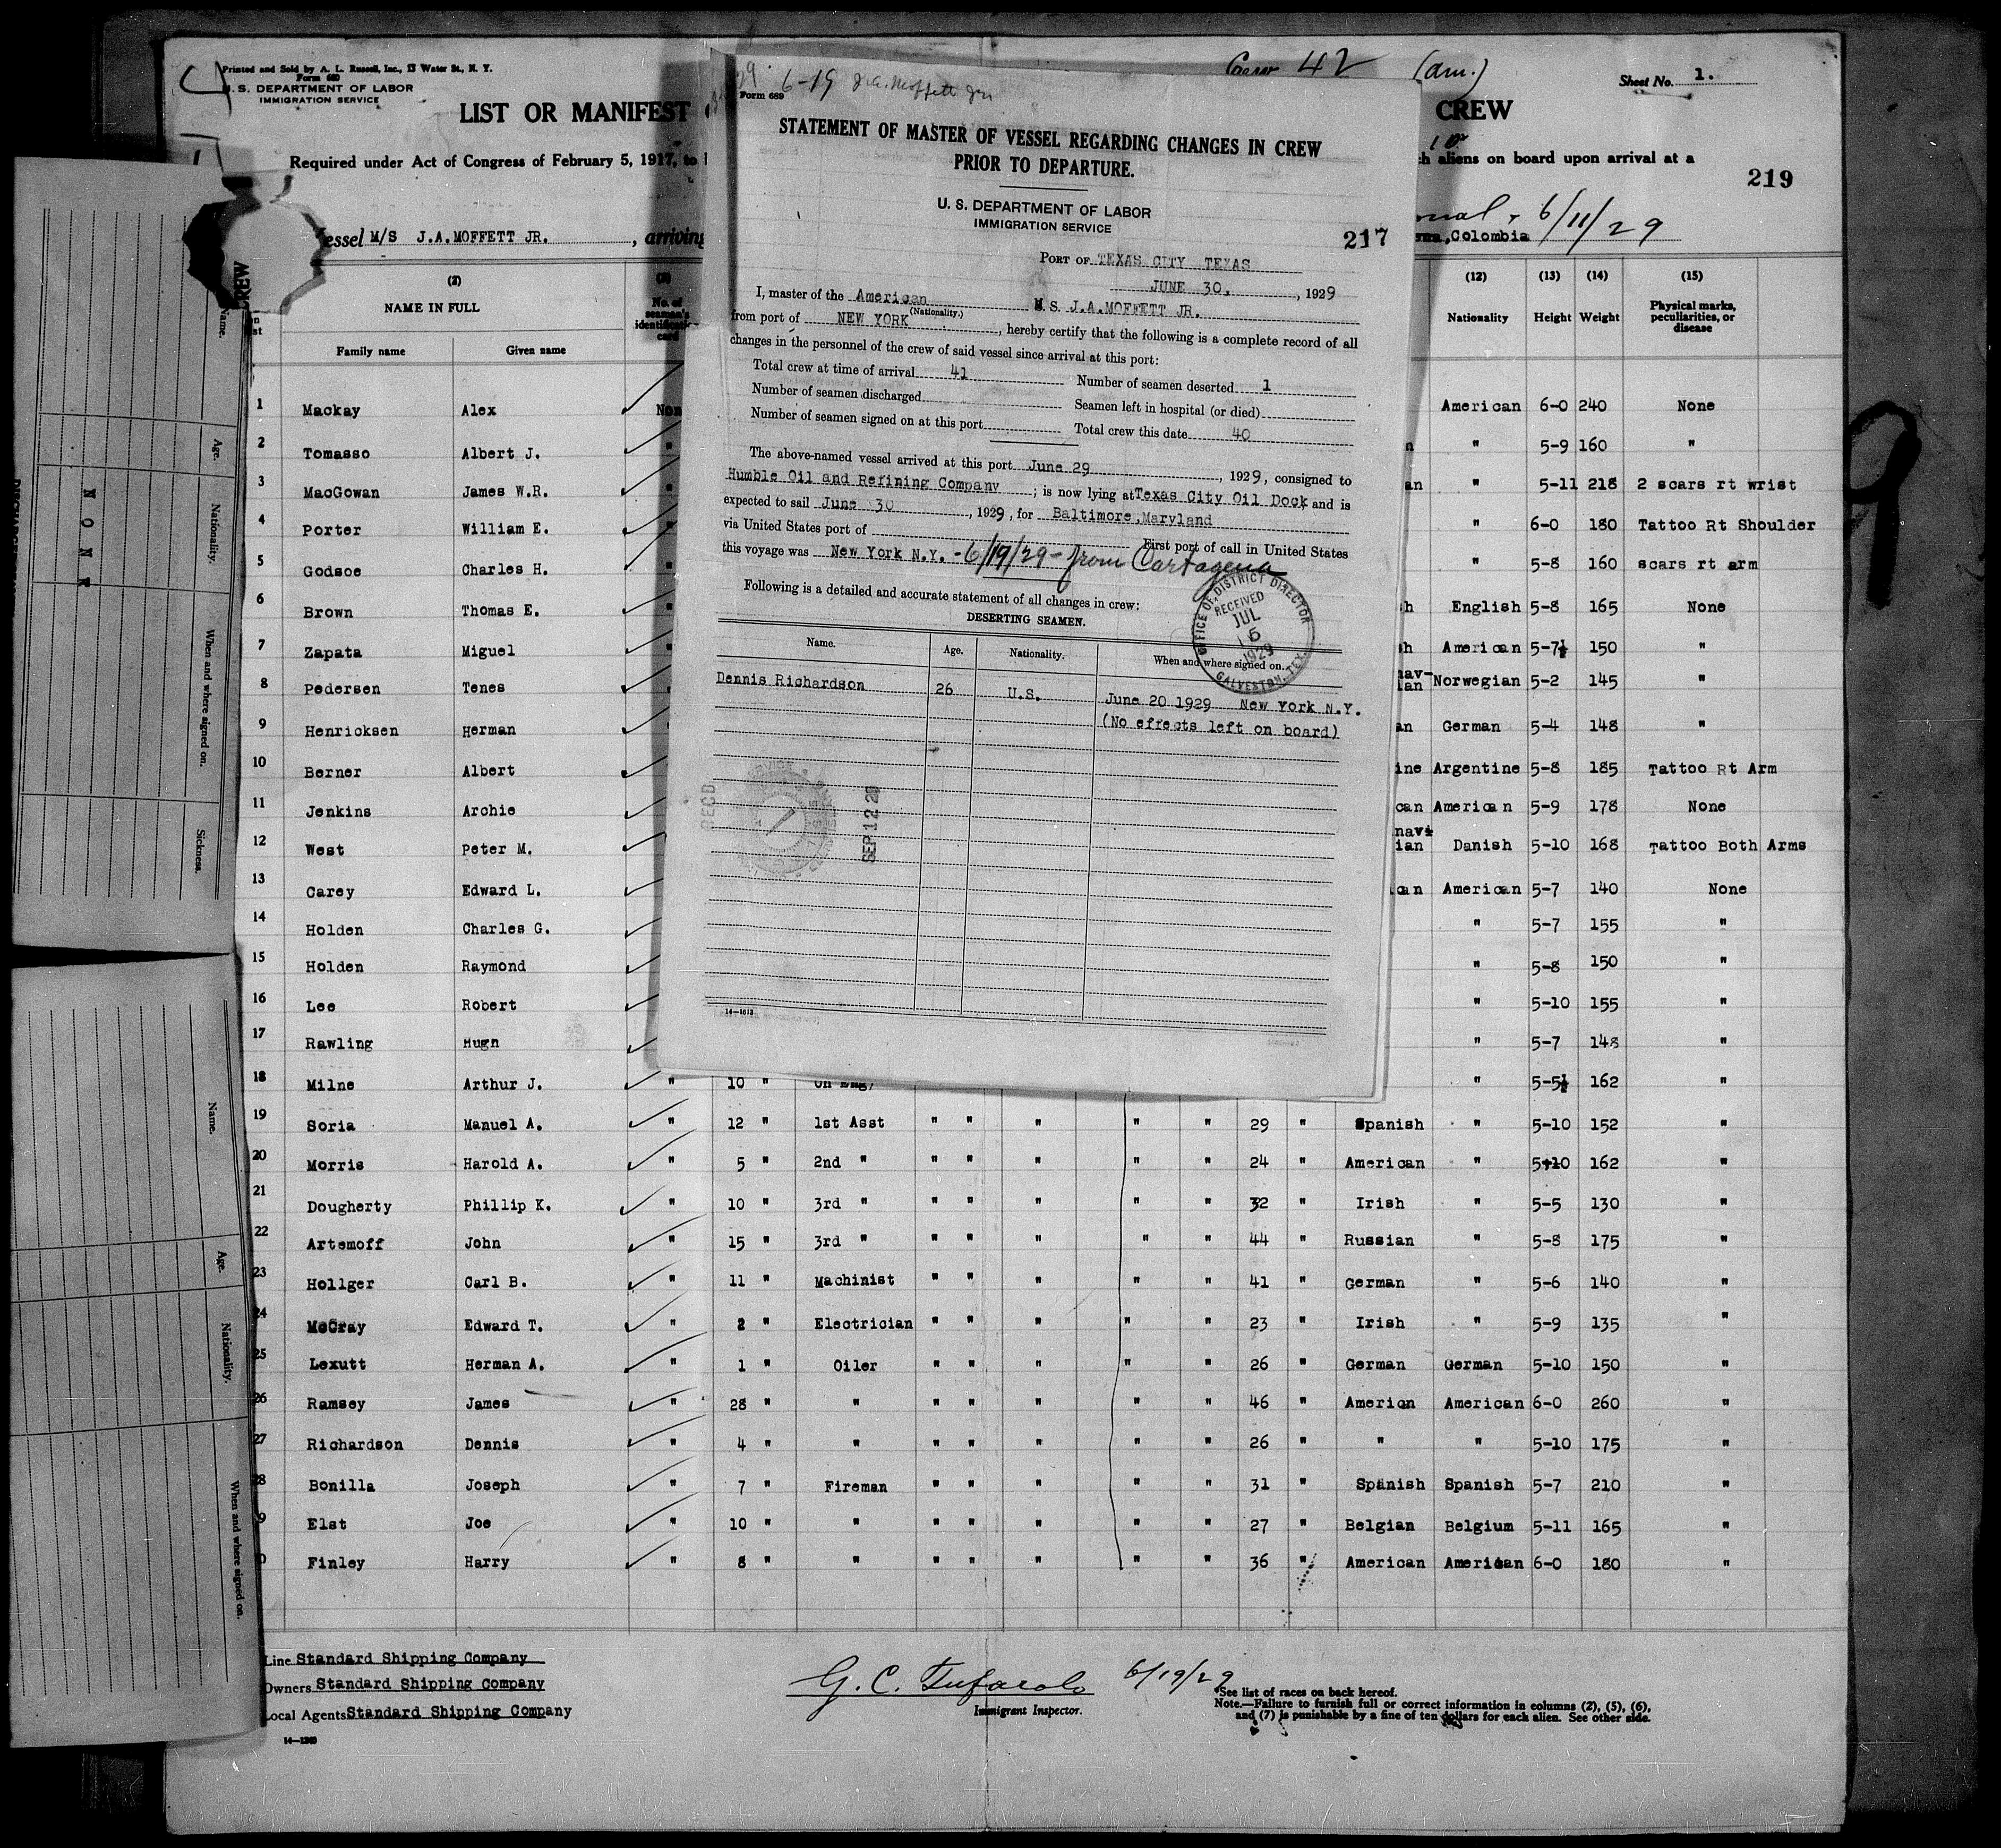 Printed and Sold by A. L. Russell, Inc., 13 Water St., N. Y.
Form 680
U. S. DEPARTMENT OF LABOR
IMMIGRATION SERVICE
Crew 42 (Am.)
Sheet No. 1.
LIST OR MANIFEST
CREW
Required under Act of Congress of February 5, 1917, to
aliens on board upon arrival at a
219
Vessel M/S J.A.MOFFETT JR. , arriving
6/11/29
,Colombia
(2) (3) (12) (13) (14) (15)
NAME IN FULL
Family name Given name
No. of seaman's identification card
Nationality Height Weight Physical marks, peculiarities, or disease
1 Mackay Alex Non American 6-0 240 None
2 Tomasso Albert J. " " 5-9 160 "
3 MacGowan James W.R. " " 5-11 218 2 scars rt wrist
4 Porter William E. " " 6-0 180 Tattoo Rt Shoulder
5 Godsoe Charles H. " " 5-8 160 scars rt arm
6 Brown Thomas E. " English 5-8 165 None
7 Zapata Miguel " American 5-7½ 150 "
8 Pedersen Tenes " Norwegian 5-2 145 "
9 Henricksen Herman German 5-4 148 "
10 Berner Albert Argentine 5-8 185 Tattoo Rt Arm
11 Jenkins Archie American 5-9 178 None
12 West Peter M. Danish 5-10 168 Tattoo Both Arms
13 Carey Edward L. American 5-7 140 None
14 Holden Charles G. " 5-7 155 "
15 Holden Raymond " 5-8 150 "
16 Lee Robert " 5-10 155 "
17 Rawling Hugh " 5-7 148 "
18 Milne Arthur J. " 10 " " 5-5½ 162 "
19 Soria Manuel A. " 12 " 1st Asst " " " " " 29 " Spanish " 5-10 152 "
20 Morris Harold A. " 5 " 2nd " " " " " " 24 " American " 5-10 162 "
21 Dougherty Phillip K. " 10 " 3rd " " " " " " 32 " Irish " 5-5 130 "
22 Artemoff John " 15 " 3rd " " " " " " 44 " Russian " 5-8 175 "
23 Hollger Carl B. " 11 " Machinist " " " " " 41 " German " 5-6 140 "
24 McCray Edward T. " 2 " Electrician " " " " " 23 " Irish " 5-9 135 "
25 Lexutt Herman A. " 1 " Oiler " " " " " 26 " German German 5-10 150 "
26 Ramsey James " 28 " " " " " " " 46 " American American 6-0 260 "
27 Richardson Dennis " 4 " " " " " " " 26 " " " 5-10 175 "
28 Bonilla Joseph " 7 " Fireman " " " " " 31 " Spanish Spanish 5-7 210 "
9 Elst Joe " 10 " " " " " " " 27 " Belgian Belgium 5-11 165 "
0 Finley Harry " 8 " " " " " " " 36 " American American 6-0 180 "
Line Standard Shipping Company
Owners Standard Shipping Company
Local Agents Standard Shipping Company
14—1240
G. C. Tufarolo 6/19/29
Immigrant Inspector.
See list of races on back hereof.
Note.—Failure to furnish full or correct information in columns (2), (5), (6),
and (7) is punishable by a fine of ten dollars for each alien. See other side.
6-19 J.A. Moffett Jr
Form 689
STATEMENT OF MASTER OF VESSEL REGARDING CHANGES IN CREW
PRIOR TO DEPARTURE.
U. S. DEPARTMENT OF LABOR
IMMIGRATION SERVICE
217
PORT OF TEXAS CITY TEXAS
JUNE 30, , 1929
I, master of the American M S. J.A.MOFFETT JR.
(Nationality.)
from port of NEW YORK , hereby certify that the following is a complete record of all
changes in the personnel of the crew of said vessel since arrival at this port:
Total crew at time of arrival 41 Number of seamen deserted 1
Number of seamen discharged Seamen left in hospital (or died)
Number of seamen signed on at this port Total crew this date 40
The above-named vessel arrived at this port June 29 , 1929, consigned to
Humble Oil and Refining Company ; is now lying at Texas City Oil Dock and is
expected to sail June 30 , 1929, for Baltimore,Maryland
via United States port of First port of call in United States
this voyage was New York N.Y. -6/19/29- from Cartagena
Following is a detailed and accurate statement of all changes in crew:
DESERTING SEAMEN.
Name. Age. Nationality. When and where signed on.
Dennis Richardson 26 U.S. June 20 1929 New York N.Y.
(No effects left on board)
OFFICE OF DISTRICT DIRECTOR
RECEIVED
JUL
5
1929
GALVESTON, TEX.
RECD
SEP 12 29
14—1613
CREW
Name.
Age.
Nationality.
When and where signed on.
Sickness.
NONE
Name.
Age.
Nationality.
When and where signed on.